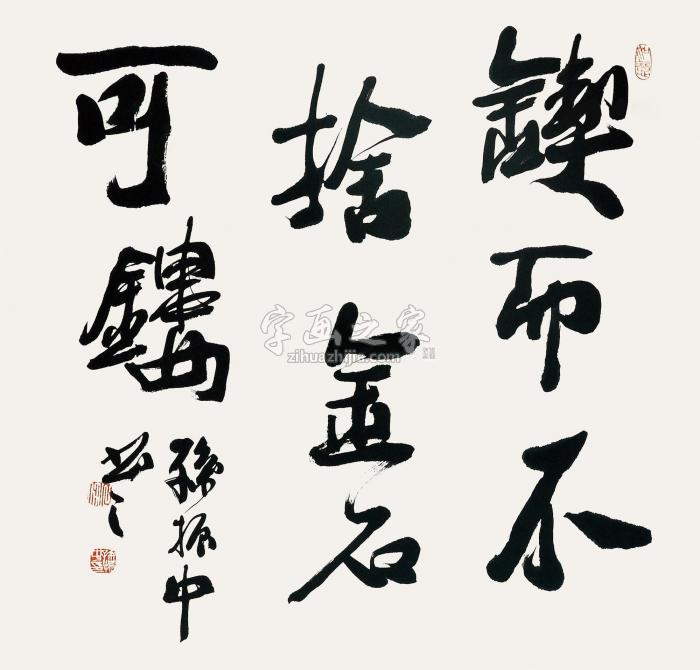 鍥而不
捨金石
可鏤
孫振中
书之
字画之家
zihuazhijia.com